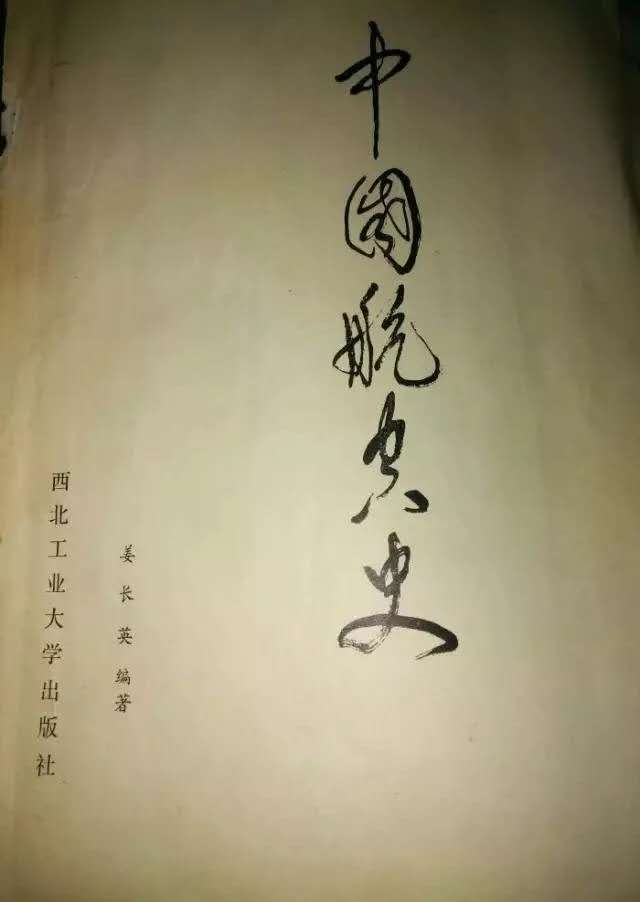 中國航空史
姜长英编著
西北工业大学出版社